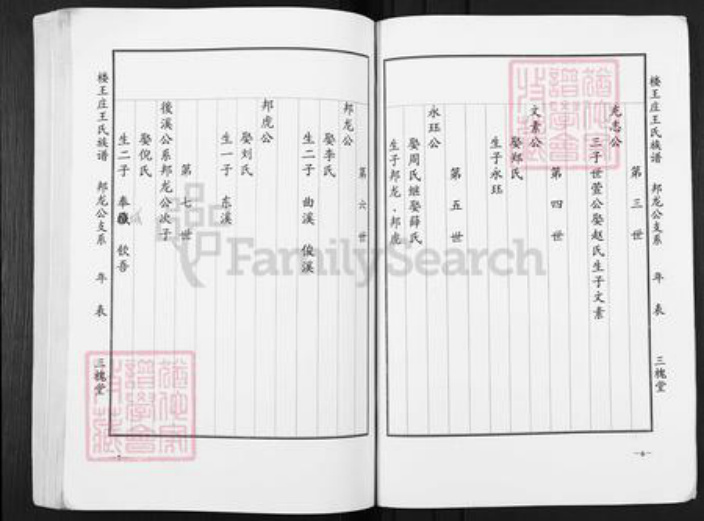 楼王庄王氏族谱 邦龙公支系 年表 三槐堂
第三世
充志公
三子世萱公娶赵氏生子文素
第四世
文素公
娶郑氏
生子永珏
第五世
永珏公
娶周氏继娶薛氏
生子邦龙、邦虎
第六世
邦龙公
娶李氏
生二子 曲溪 俊溪
邦虎公
娶刘氏
生一子 东溪
第七世
後溪公系邦龙公次子
娶倪氏
生二子 奉 钦吾
楼王庄王氏族谱 邦龙公支系 年表 三槐堂
FamilySearch